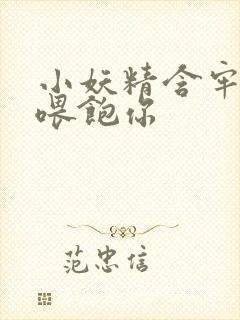 小妖精含牢
喂饱你
范忠信